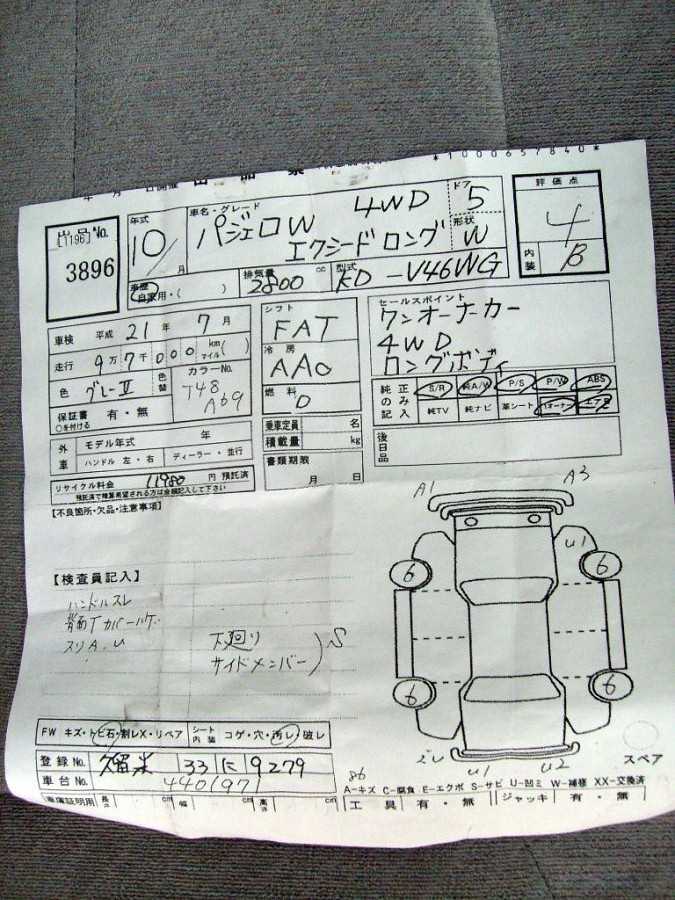 *1000657840*
[1196] No.
3896
年式
10/月
車名・グレード
パジェロW 4WD
エクシードロング
ドア
5
形状
W
評価点
4
内装
B
車歴
自家用・( )
排気量
2800 cc
型式
KD-V46WG
車検 平成 21年 7月
走行 9万7千000 km マイル( )
色 グレーⅡ
色替
カラーNo.
T48
A69
保証書 有・無
○を付ける
外車
モデル年式 年
ハンドル 左・右 ディーラー・並行
リサイクル料金 11980 円 預託済
預託済で精算希望される方は金額記入して下さい
シフト
FAT
冷房
AAC
燃料
D
乗車定員 名
積載量 kg
書類期限
月 日
セールスポイント
ワンオーナーカー
4WD
ロングボディ
純正のみ記入
S/R 純A/W P/S P/W ABS
純TV 純ナビ 革シート 1オーナー エアB
後日品
【不良箇所・欠品・注意事項】
【検査員記入】
ハンドルスレ
スリA.U
下廻り
サイドメンバー
S
A1 A3
U1
6 6
6 6
U1 U2
スペア
FW キズ・トビ石・割レX・リペア
シート内装 コゲ・穴・汚レ・破レ
登録No. 久留米 33 に 9279
車台No. 4401971
車庫証明用 長さ cm 幅 cm 高さ cm
A-キズ C-腐食 E-エクボ S-サビ U-凹ミ W-補修 XX-交換済
工具 有・無 ジャッキ 有・無